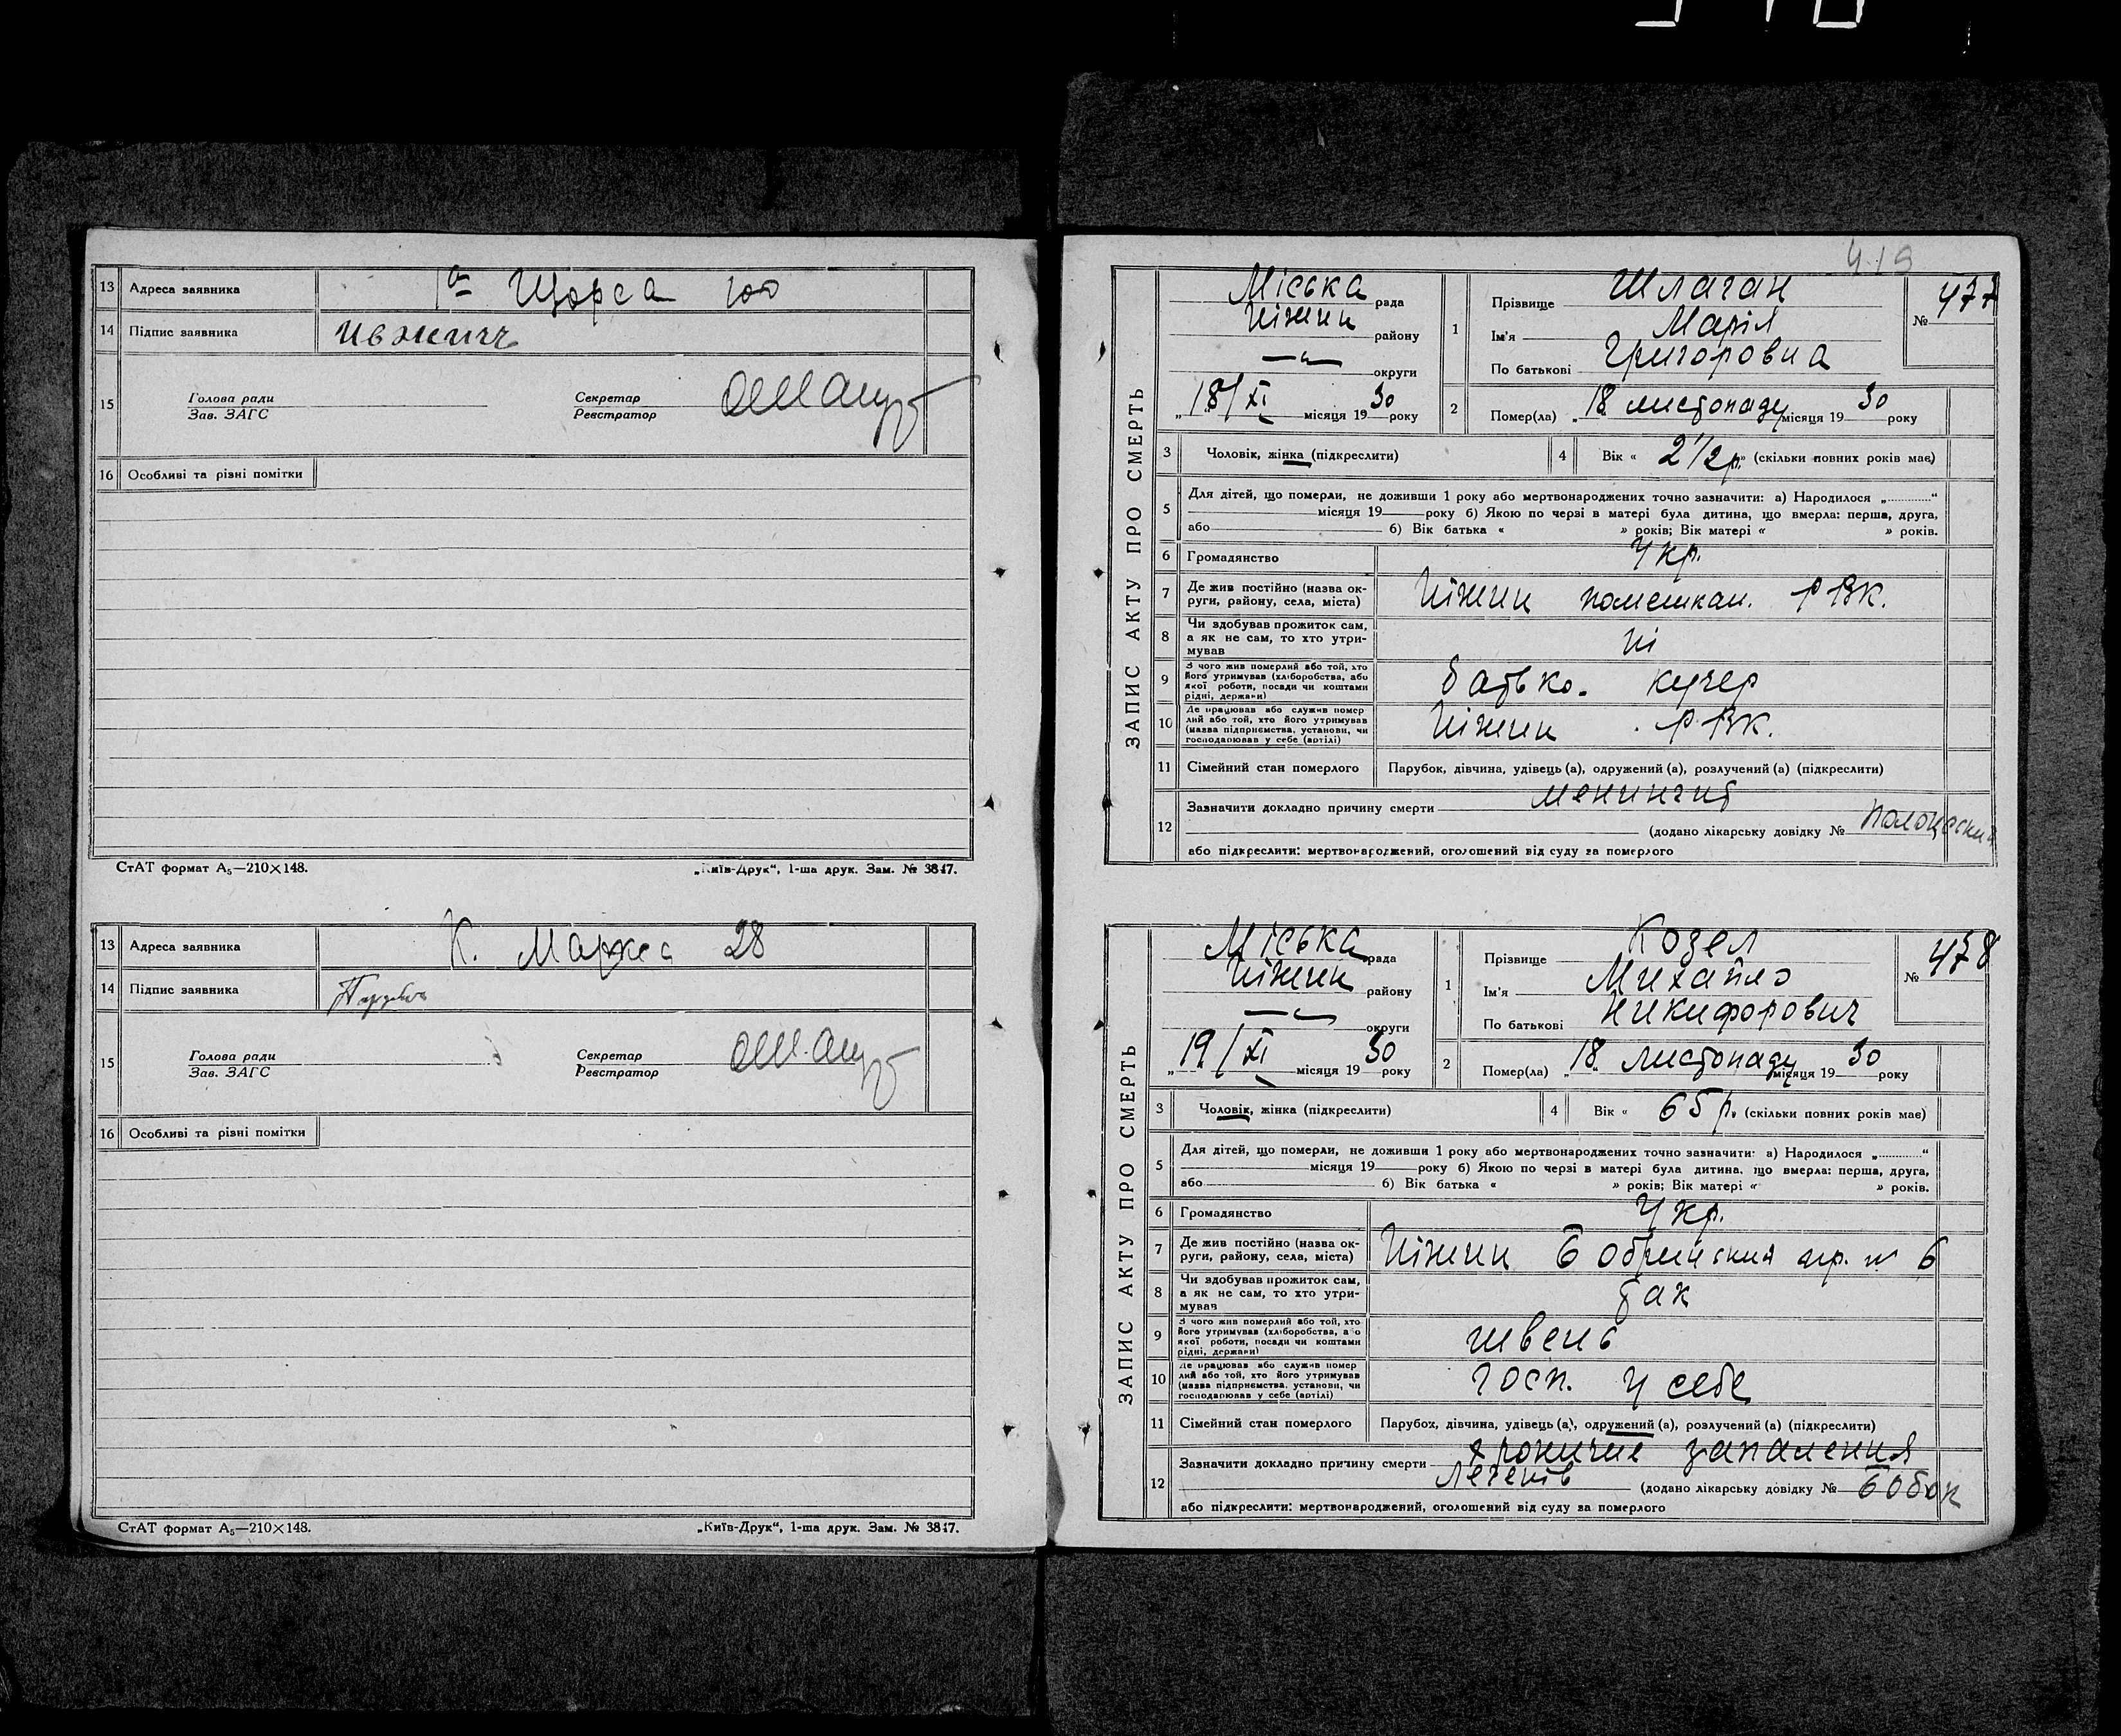 13 Адреса заявника 1а Щорса 100
14 Підпис заявника
15 Голова ради Секретар
Зав. ЗАГС Реєстратор
16 Особливі та різні помітки
СтАТ формат А₅—210×148. „Київ-Друк“, 1-ша друк. Зам. № 3847.
13 Адреса заявника К. Маркса 28
14 Підпис заявника
15 Голова ради Секретар
Зав. ЗАГС Реєстратор
16 Особливі та різні помітки
СтАТ формат А₅—210×148. „Київ-Друк“, 1-ша друк. Зам. № 3847.
419
ЗАПИС АКТУ ПРО СМЕРТЬ
Міська рада
Ніжин району
округи
„18/XI місяця 1930 року
1 Прізвище Шлаган
Ім'я Марія
По батькові Григоровна
№ 477
2 Помер(ла) „18 листопаду місяця 1930 року
3 Чоловік, жінка (підкреслити) 4 Вік « 2 1/2 р.» (скільки повних років має)
5 Для дітей, що померли, не доживши 1 року або мертвонароджених точно зазначити: а) Народилося „ “
місяця 19 року б) Якою по черзі в матері була дитина, що вмерла: перша, друга,
або б) Вік батька « » років; Вік матері « » років.
6 Громадянство Укр.
7 Де жив постійно (назва ок-
руги, району, села, міста) Ніжин помешкан. РВК.
8 Чи здобував прожиток сам,
а як не сам, то хто утри-
мував ні
9 З чого жив померлий або той, хто
його утримував (хліборобства, або
якої роботи, посади чи коштами
рідні, держави) батько. кучер
10 Де працював або служив помер
лий або той, хто його утримував
(назва підприємства, установи, чи
господарював у себе (артілі) Ніжин РВК.
11 Сімейний стан померлого Парубок, дівчина, удівець (а), одружений (а), розлучений (а) (підкреслити)
12 Зазначити докладно причину смерти менингит
(додано лікарську довідку №
або підкреслити: мертвонароджений, оголошений від суду за померлого
ЗАПИС АКТУ ПРО СМЕРТЬ
Міська рада
Ніжин району
округи
„19/XI місяця 1930 року
1 Прізвище Козел
Ім'я Михайло
По батькові Никифорович
№ 478
2 Помер(ла) „18“ листопаду місяця 1930 року
3 Чоловік, жінка (підкреслити) 4 Вік « 65 р. (скільки повних років має)
5 Для дітей, що померли, не доживши 1 року або мертвонароджених точно зазначити: а) Народилося „ “
місяця 19 року б) Якою по черзі в матері була дитина, що вмерла: перша, друга,
або б) Вік батька « » років; Вік матері « » років.
6 Громадянство Укр.
7 Де жив постійно (назва ок-
руги, району, села, міста) Ніжин № 6
8 Чи здобував прожиток сам,
а як не сам, то хто утри-
мував так
9 З чого жив померлий або той, хто
його утримував (хліборобства, або
якої роботи, посади чи коштами
рідні, держави) швець
10 Де працював або служив помер
лий або той, хто його утримував
(назва підприємства, установи, чи
господарював у себе (артілі) госп. у себе
11 Сімейний стан померлого Парубок, дівчина, удівець (а), одружений (а), розлучений (а) (підкреслити)
12 Зазначити докладно причину смерти хроничне запалення
легенів (додано лікарську довідку № Бобок
або підкреслити: мертвонароджений, оголошений від суду за померлого